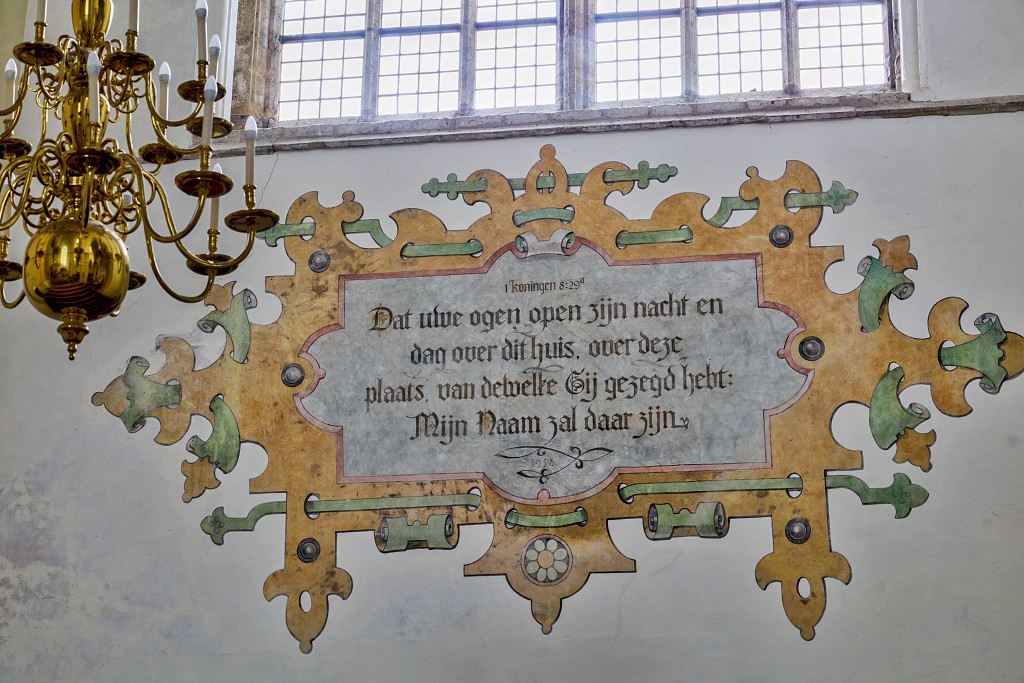 1 koningen 8:29ª
Dat uwe ogen open zijn nacht en
dag over dit huis, over deze
plaats, van dewelke Gij gezegd hebt:
Mijn Naam zal daar zijn